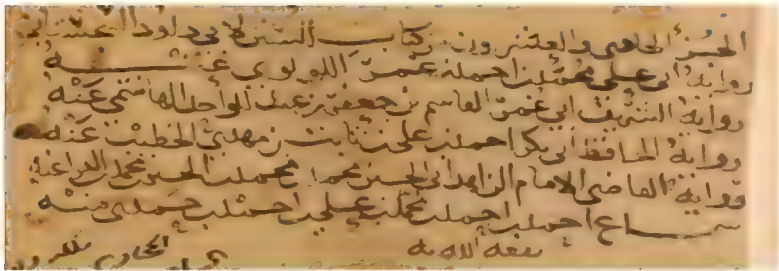 الجزء الحادي والعشرون من كتاب السنن لابي داود السجستاني
رواية ابي علي محمد بن احمد بن عمرو اللولوي عنه
رواية الشريف ابي عمر القاسم بن جعفر بن عبد الواحد الهاشمي عنه
رواية الحافظ ابي بكر احمد بن علي بن ثابت بن مهدي الخطيب عنه
رواية القاضي الامام الزاهد ابي الحسين محمد بن محمد بن الحسين بن محمد بن الفراء عنه
سماع احمد بن احمد بن محمد بن علي بن احمد بن حمدي منه
نفعه الله به